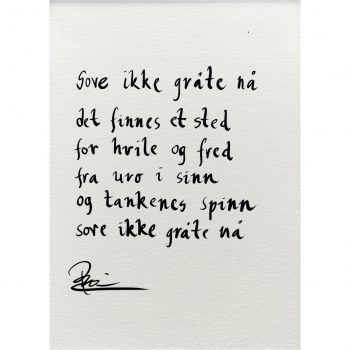 sove ikke gråte nå
det finnes et sted
for hvile og fred
fra uro i sinn
og tankenes spinn
sove ikke gråte nå